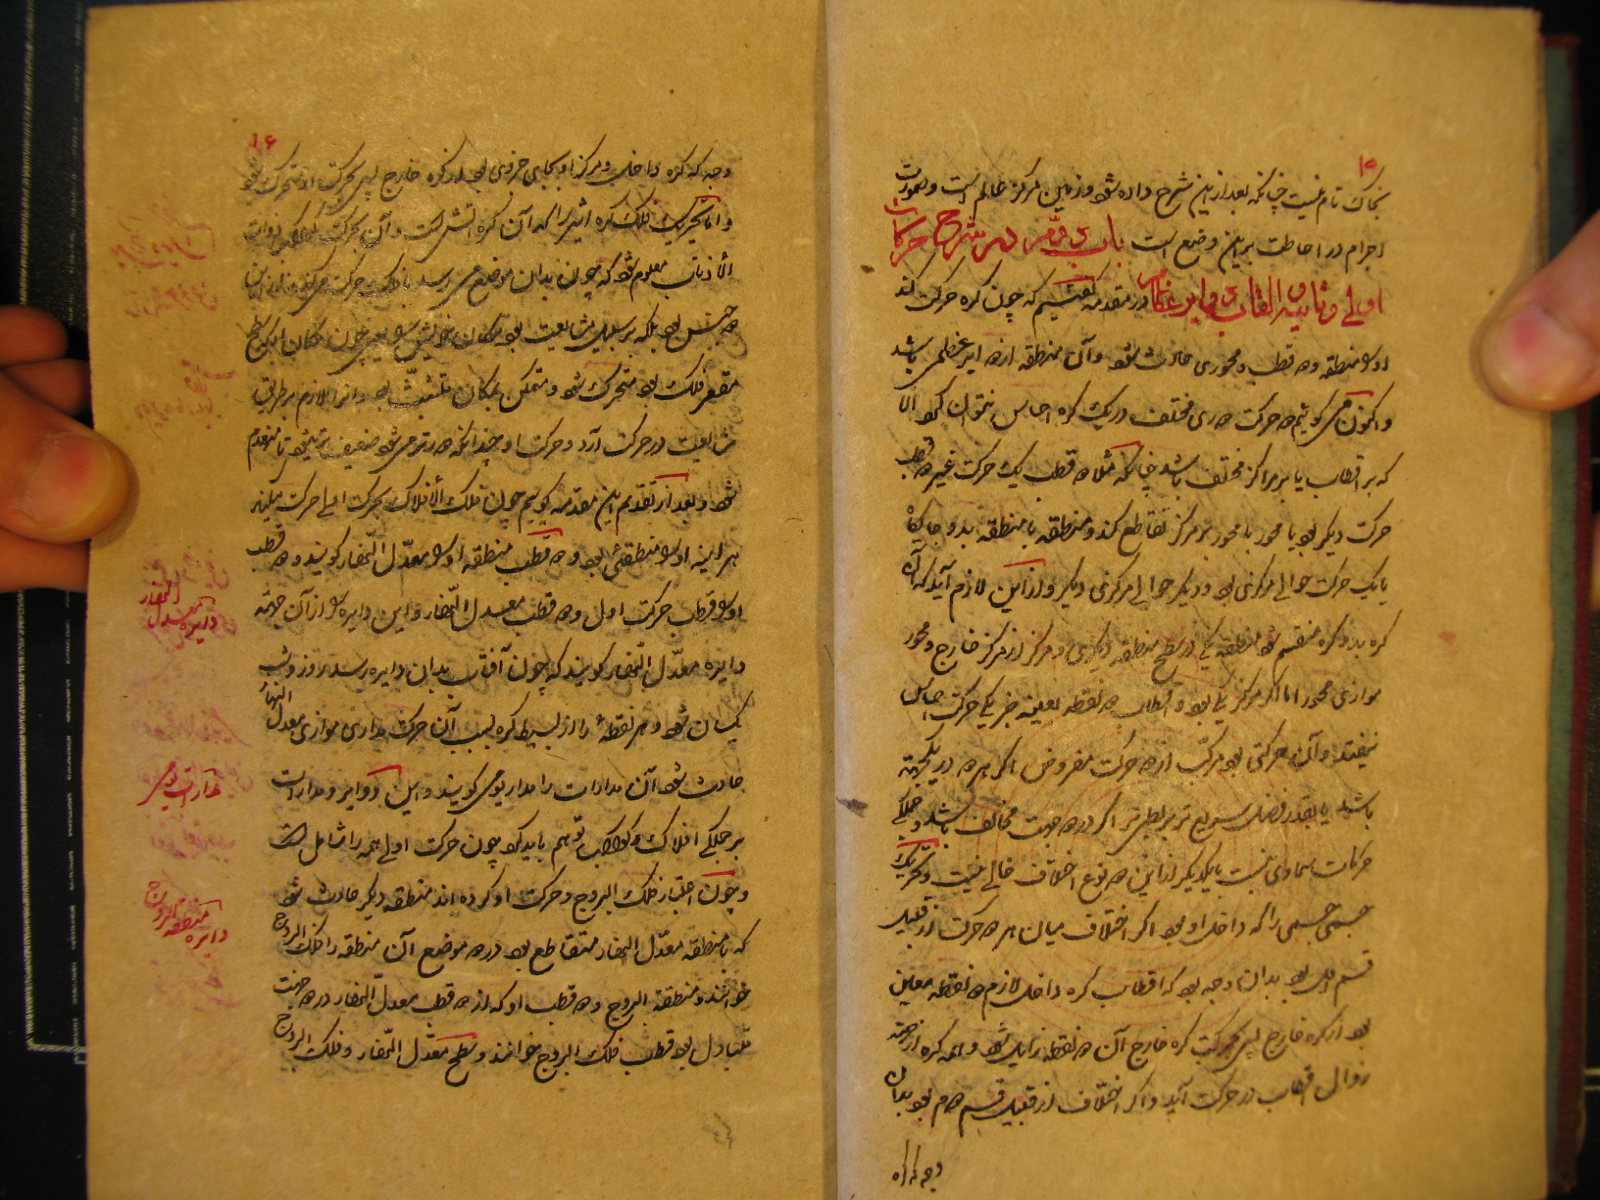 ۱۵
بخاک تمام نیست چنانکه بعد ازین شرح داده شود و زمین مرکز عالم است و صورت
اجرام در احاطت برین وضع است باب دوم در شرح حرکات
اولی و ثانیه در مقدمه گفتیم که چون کره حرکت کند
او را منطقه و دو قطب و محوری حادث شود و آن منطقه از دوایر عظمی باشد
و اکنون می گوییم دو حرکت مختلف در یک کره احساس نتوان کرد الا
که بر اقطاب یا بر مراکز مختلف باشد چنانکه مثلا دو قطب یک حرکت غیر دو قطب
حرکت دیگر بود یا محور با محور بر مرکز تقاطع کند و منطقه با منطقه بدو جایگاه
یا یک حرکت حوالی مرکزی بود و دیگر حوالی مرکزی دیگر و ازین لازم آید که آن
کره بدو کره منقسم شود منطقه یکی از سطح منطقه دیگری و مرکز از مرکز خارج و محور
موازی محور اما اگر مرکز یکی بود و اقطاب دو نقطه بعینه جز یکی حرکت احساس
نیفتد و آن حرکتی بود مرکب از دو حرکت مفروض اگر هر دو در یکجهت
باشند یا بقدر فضل سریع تر بر بطی تر اگر در دو جهت مخالف باشد و جملگی
حرکات سماوی نسبت بایکدیگر ازین دو نوع اختلاف خالی نیست و تحریک
جسمی جسمی را که داخل او بود اگر اختلاف میان هر دو حرکت از قبیل
قسم اول بود بدان وجه بود که اقطاب کره داخل لازم دو نقطه معین
بود از کره خارج پس بحرکت کره خارج آن دو نقطه زایل شود و همه کره از جهت
زوال اقطاب در حرکت آید و اگر اختلاف از قبیل قسم دوم بود بدان
وجه که کره
۱۶
وجه که کره داخل و مرکز او بجای جزوی بود از کره خارج پس بحرکت او متحرک شود
و اما تحریک فلک کره اثیر را که آن کره آتش است و آن بحرکت
معلوم شود که چون بدان موضع می رسد
جنبش بود بلکه بر سبیل مشایعت بود مکان خویش را یعنی چون مکان او که سطح
مقعر فلک بود متحرک شود و متمکن بمکان متشبث بود و او را لازم بر طریق
مشایعت در حرکت آرد و حرکت او چندانکه فروتر می شود ضعیف تر می شود تا منعدم
شود و بعد از تقدیم این مقدمه گوییم چون فلک الافلاک بحرکت اولی حرکت میکند
هر آینه او را منطقه بود و دو قطب منطقه او را معدل النهار گویند و دو قطب
او را قطب حرکت اول و دو قطب معدل النهار و این دایره را از آن جهت
دایره معدل النهار گویند که چون آفتاب بدان دایره رسد روز و شب
یکسان شود و هر نقطه را از بسیط کره بسبب آن حرکت مداری موازی معدل النهار
حادث شود آن مدارات را مدار یومی گویند و این دوایر و مدارات
بر جملگی افلاک و کواکب توهم باید کرد چون حرکت اولی همه را شامل است
و چون اعتبار فلک البروج و حرکت او کرده اند منطقه دیگر حادث شود
که با منطقه معدل النهار متقاطع بود در دو موضع آن منطقه را فلک البروج
خوانند و منطقه البروج و دو قطب او که از دو قطب معدل النهار در دو جهت
متبادل بود قطب فلک البروج خوانند و سطح معدل النهار و فلک البروج
دایره معدل النهار
مدارات یومی
دایره منطقه البروج